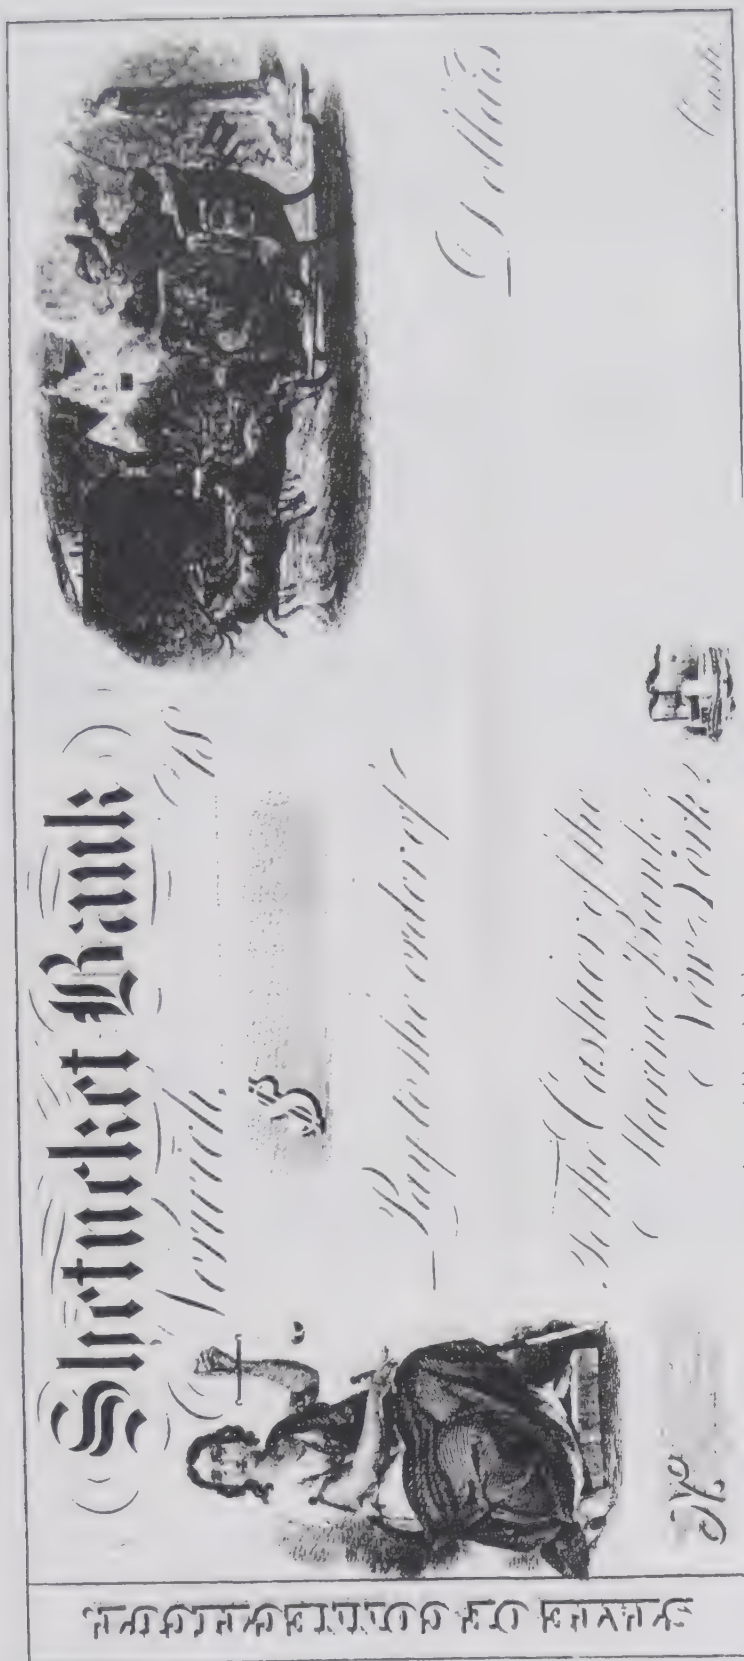 STATE OF CONNECTICUT.
Shetucket Bank
Norwich, 18
$
Pay to the order of
Dollars
To the Cashier of the
Marine Bank
New York.
No.
Cash.